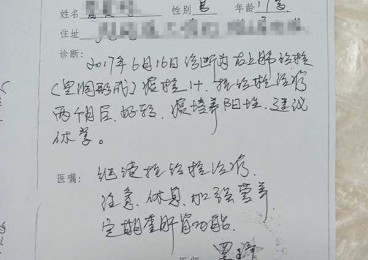 姓名 性别 男 年龄 17岁
住址
诊断：
2017年6月16日诊断为右上肺结核
(空洞形成) 痰检1+，抗结核治疗
两个月后，好转，痰培养阳性，建议
休学。
医嘱：
继续抗结核治疗，
注意休息，加强营养
定期查肝肾功能